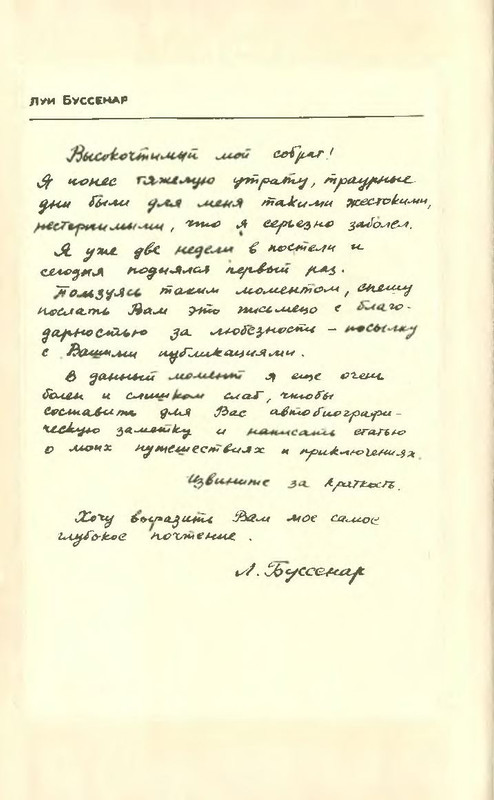 Луи Буссенар
Высокочтимый мой собрат!
Я понес тяжелую утрату, траурные
дни были для меня такими жестокими,
нестерпимыми, что я серьезно заболел.
Я уже две недели в постели и
сегодня поднялся первый раз.
Пользуясь таким моментом, спешу
послать Вам это письмецо с благо-
дарностью за любезности – посылку
с Вашими публикациями.
В данный момент я еще очень
болен и слишком слаб, чтобы
составить для Вас автобиографи-
ческую заметку и написать статью
о моих путешествиях и приключениях.
Извините за краткость.
Хочу выразить Вам мое самое
глубокое почтение.
Л. Буссенар